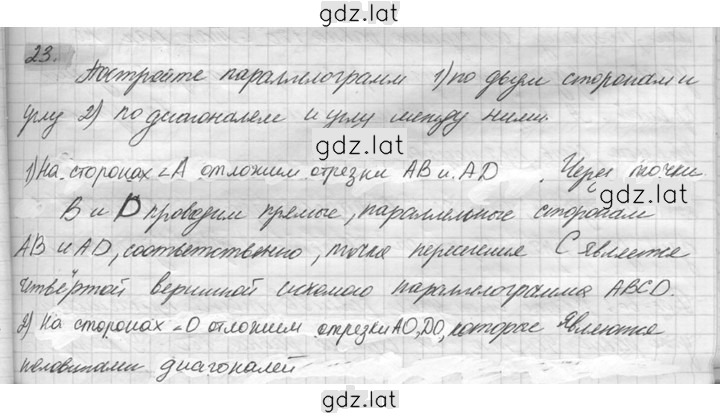 gdz.lat
23.
Постройте параллелограмм 1) по двум сторонам и
углу 2) по диагоналем и углу между ними.
gdz.lat
1) На сторонах ∠A отложим отрезки AB и AD. Через точки
gdz.lat
B и D проводим прямые, параллельные сторонам
AB и AD, соответственно, точка пересечения C является
четвёртой вершиной искомого параллелограмма ABCD.
2) На сторонах ∠O отложим отрезки AO, DO, которые являются
gdz.lat
половинами диагоналей
gdz.lat